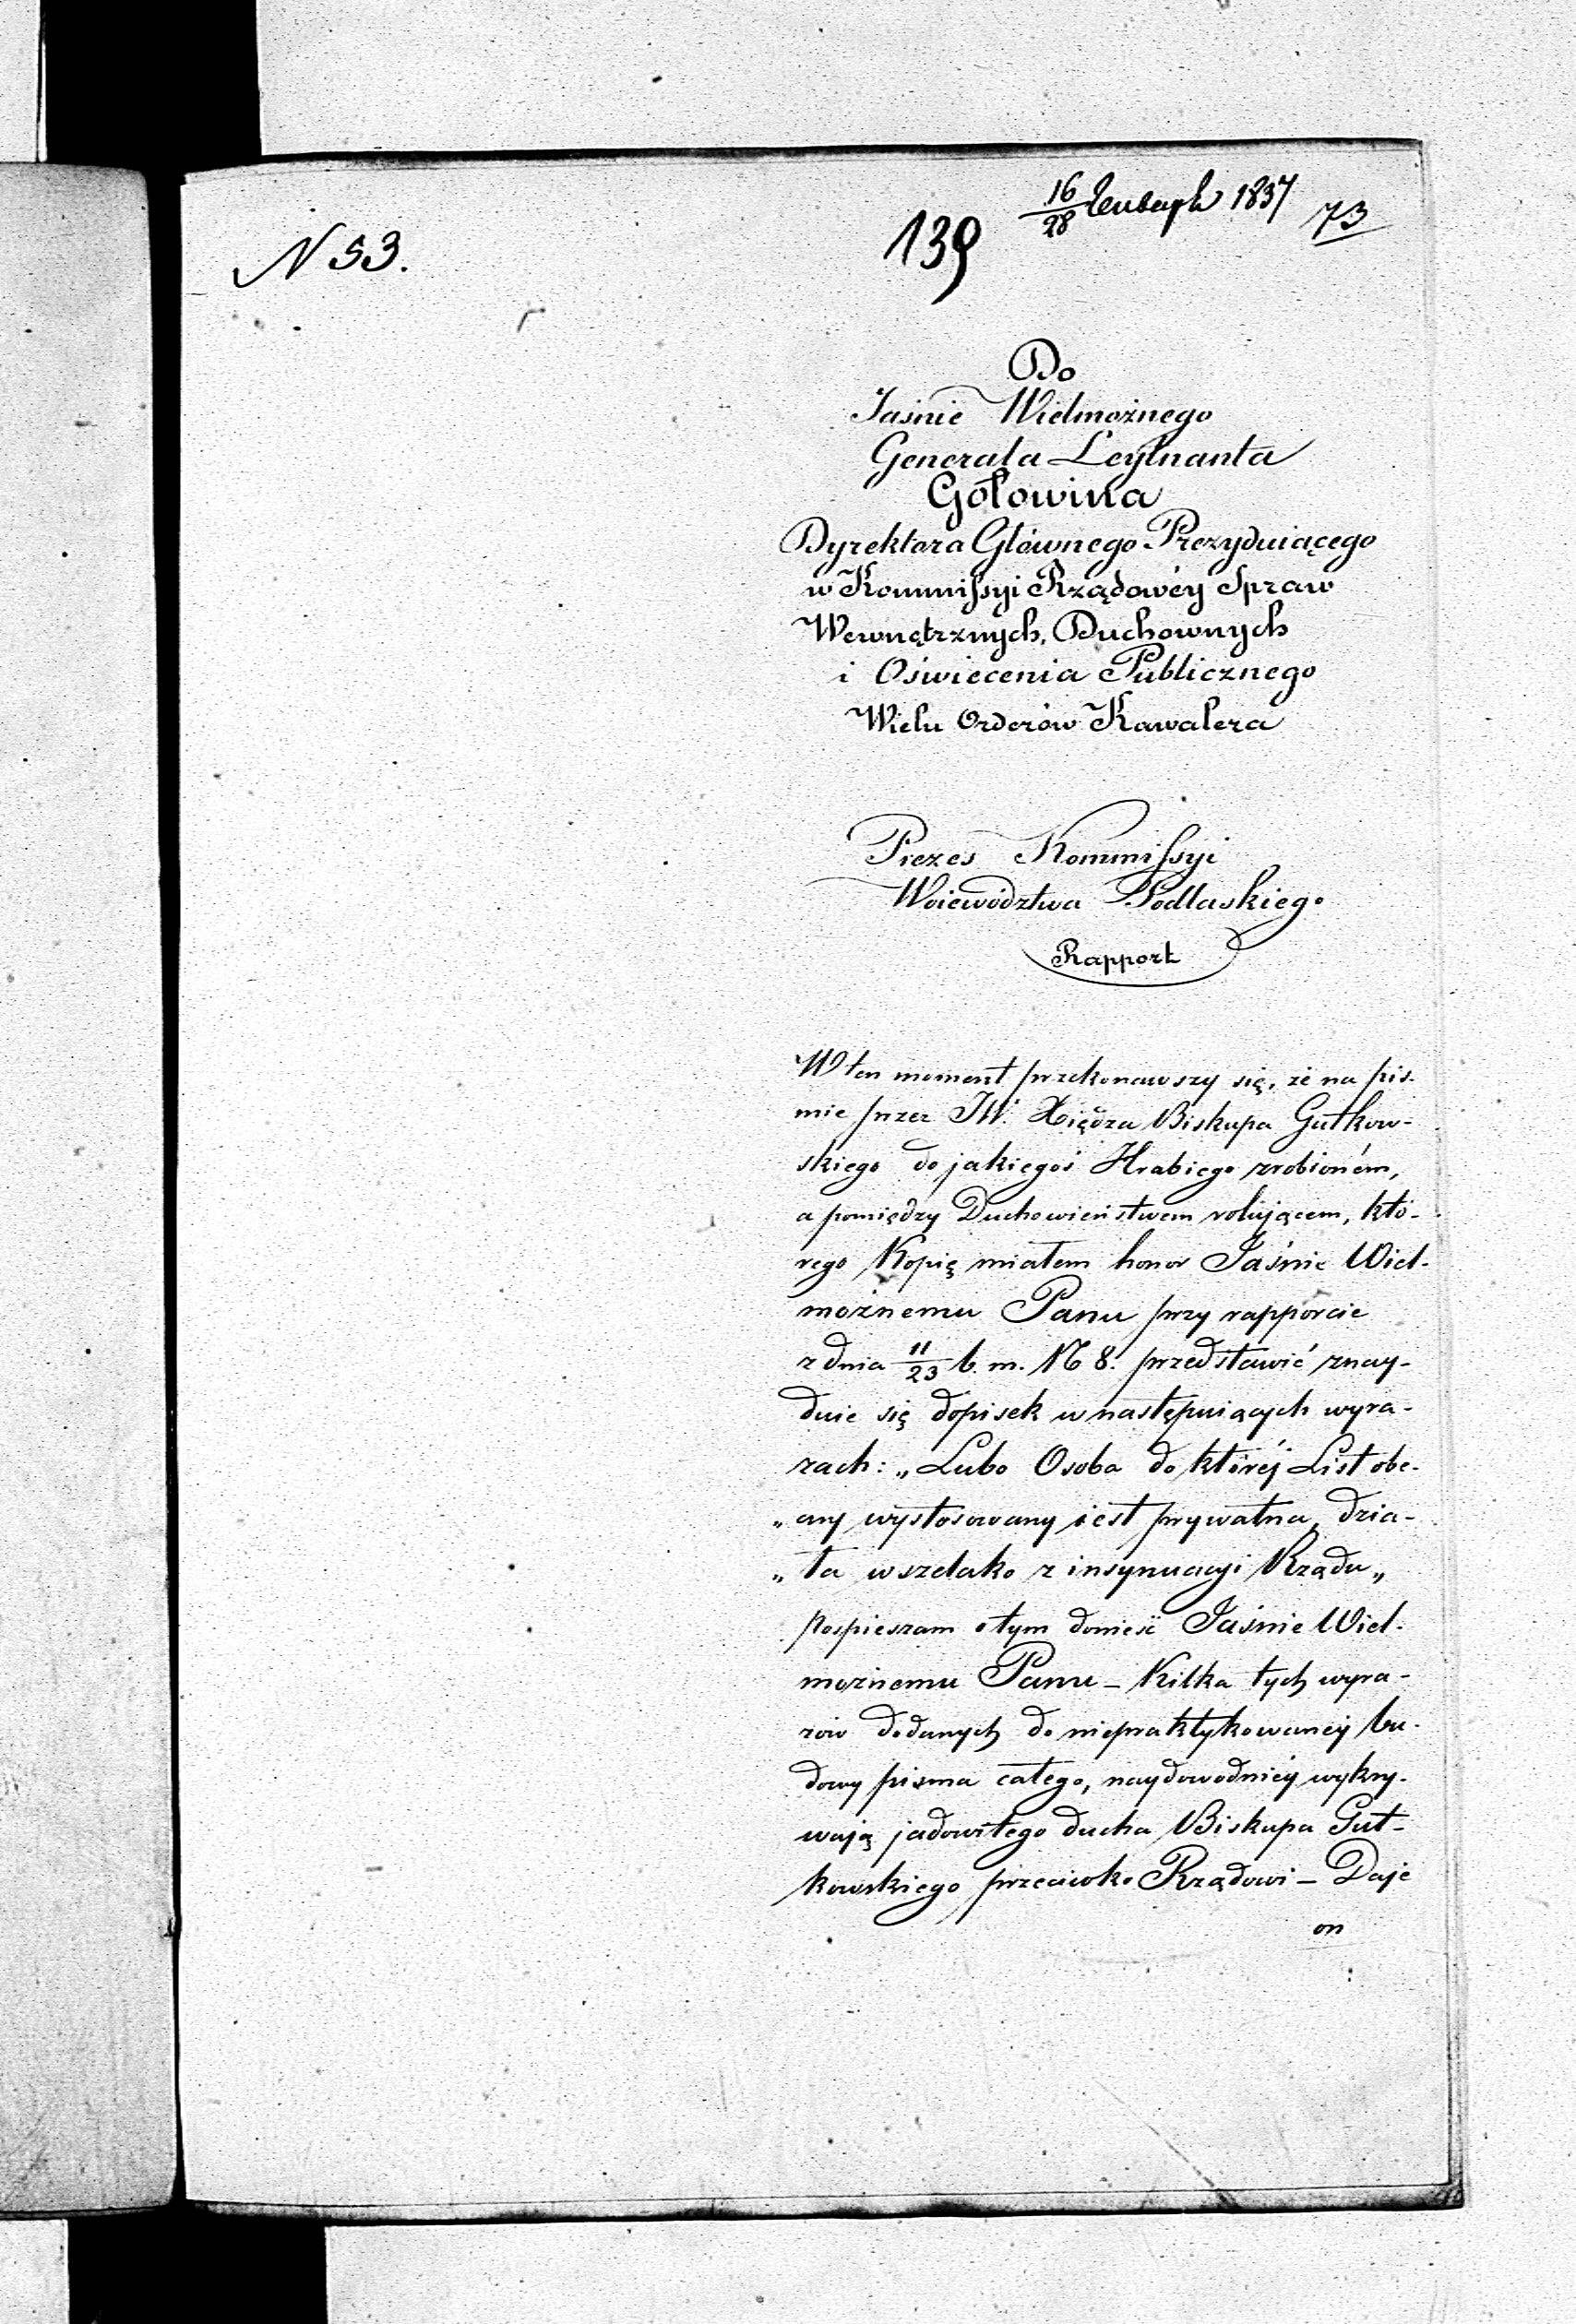 16/28 Января 1837
73
139
N 53.
Do
Jaśnie Wielmożnego
Generała Leytnanta
Gołowina
Dyrektora Głównego Prezyduiącego
w Kommissyi Rządowéy Spraw
Wewnętrznych, Duchownych
i Oświecenia Publicznego
Wielu Orderów Kawalera
Prezes Kommissyi
Woiewództwa Podlaskiego
Rapport
W ten moment przekonawszy się, że na piś-
mie przez JW. Xiędza Biskupa Gutkow-
skiego do jakiegoś Hrabiego zrobioném,
a pomiędzy Duchowieństwem rolującem, któ-
rego Kopię miałem honor Jaśnie Wiel-
możnemu Panu przy rapporcie
z dnia 11/23 b. m. N 8. przedstawić znay-
duie się dopisek w następuiących wyra-
zach: „Lubo Osoba do któréj List obe-
„cny wystosowany iest prywatna, dzia-
„ła wszelako z insynuacyi Rządu„
Pospieszam o tym donieść Jaśnie Wiel-
możnemu Panu – Kilka tych wyra-
zów dodanych do niepraktykowanéy bu-
dowy pisma całego, naydowodniéy wykry-
wają jadowitego ducha Biskupa Gut-
kowskiego przeciwko Rządowi – Daje
on